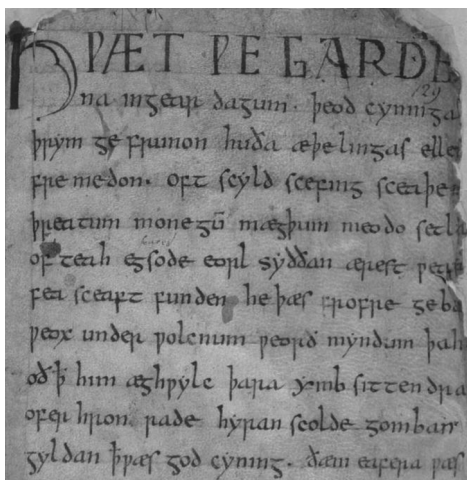 HǷÆT ǷE GARDE
na ingear dagum. þeod cyninga
þrym ge frunon huða æþelingas elle
fremedon. oft scyld scefing sceaþe
þreatum monegū mægþum meodo setla
of teah egsode eorl syððan ærest ƿear
fea sceaft funden he þæs frofre geba
ƿeox under ƿolcnum ƿeorð myndum þah
oð ꝥ him æghƿylc þara ymb sittendra
ofer hron rade hyran scolde gomban
gyldan þ ƿæs god cyning. ðæm eafera ƿæs